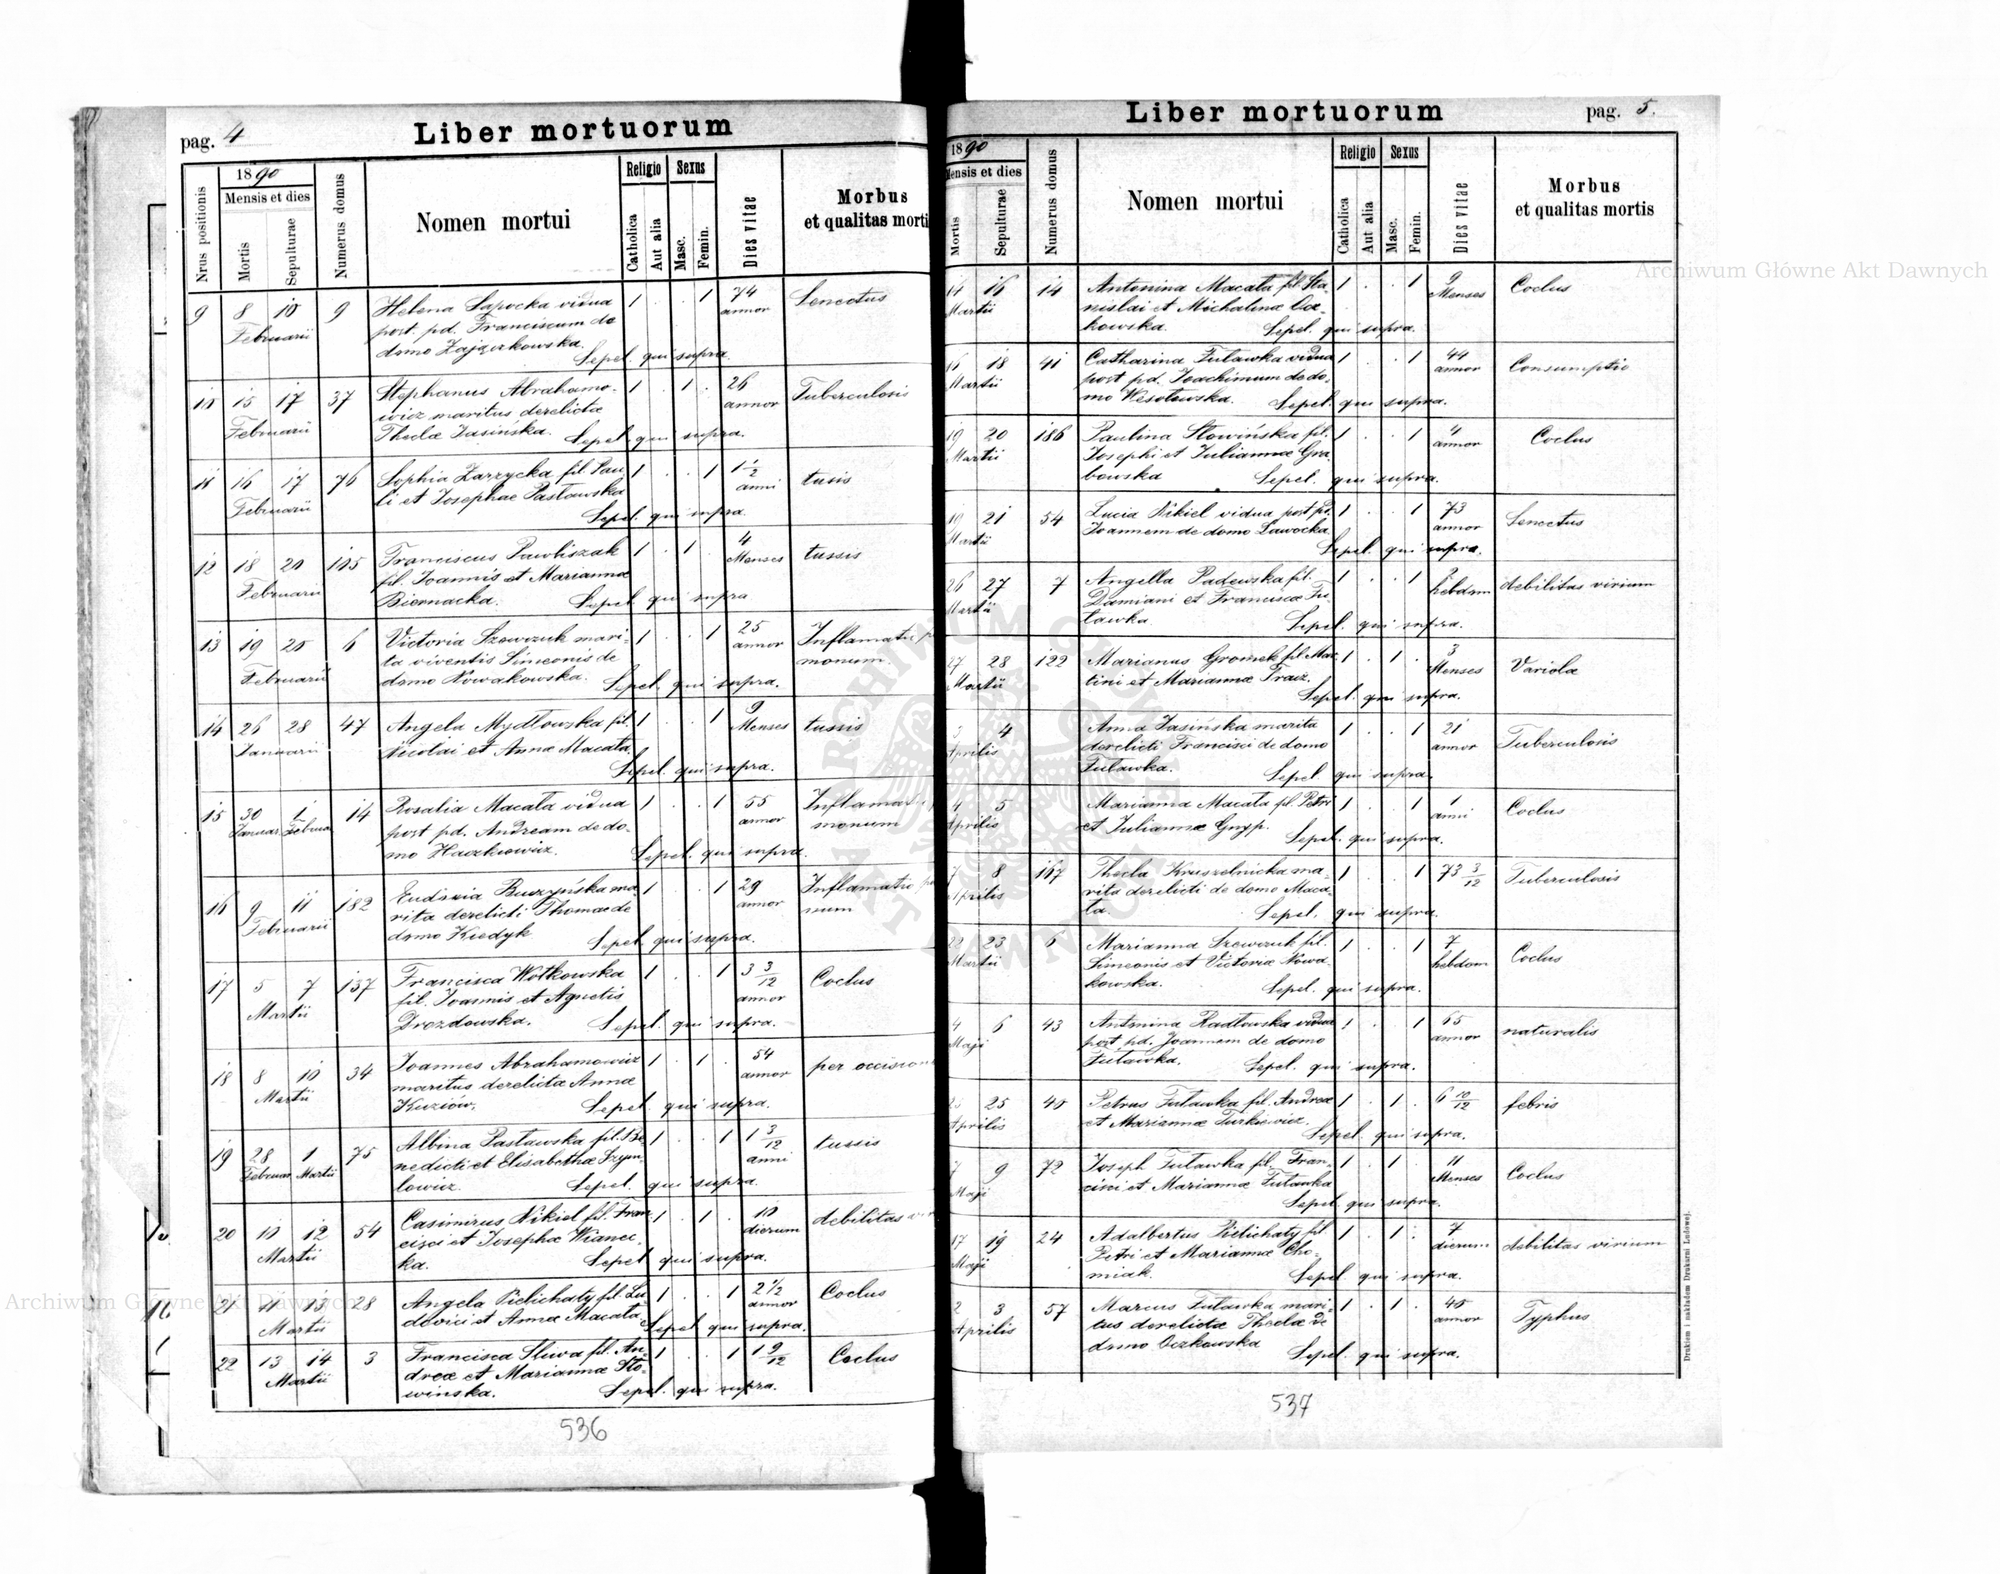 pag. 4
Liber mortuorum
Nrus positionis
1890
Mensis et dies
Mortis
Sepulturae
Numerus domus
Nomen mortui
Religio
Catholica
Aut alia
Sexus
Masc.
Femin.
Dies vitae
Morbus
et qualitas morti
9 8 10 9 Helena Sapocka vidua 1 . . 1 74 Senectus
Februarii post pd. Franciscum de annor
domo Zajączkowska.
Sepel. qui supra.
10 15 17 37 Stephanus Abrahamo- 1 . 1 . 26 Tuberculosis
Februarii wicz maritus derelictæ annor
Theclæ Jasińska. Sepel. qui supra.
11 16 17 76 Sophia Zarzycka fil. Pau 1 . . 1 1 1/2 tusis
Februarii li et Josephae Pasławska anni
Sepel. qui supra.
12 18 20 105 Franciscus Pawliszak 1 . 1 . 4 tussis
Februarii fil. Joannis et Mariannæ Menses
Biernacka. Sepel. qui supra
13 19 20 6 Victoria Szewczuk mari- 1 . . 1 25 Inflamatio
Februarii ta viventis Simeonis de annor monum.
domo Nowakowska. Sepel. qui supra.
14 26 28 47 Angela Mydłowska fil. 1 . . 1 9 tussis
Januarii Nicolai et Annæ Macała Menses
Sepel. qui supra.
15 30 1 14 Rosalia Macała vidua 1 . . 1 55
Januar Februar post pd. Andream de do- annor monum
mo Haczkiewicz. Sepel. qui supra.
16 9 11 182 Eudoxia Buczyńska ma- 1 . . 1 29 Inflamatio
Februarii rita derelicti Thomae de annor num
domo Kiedyk Sepel. qui supra.
17 5 7 137 Francisca Wołkowska 1 . . 1 3 3/12 Coclus
Martii fil. Joannis et Agnetis annor
Drozdowska. Sepel. qui supra.
18 8 10 34 Joannes Abrahamowicz 1 . 1 . 54 per occision
Martii maritus derelictæ Annæ annor
Kuziów. Sepel. qui supra.
19 28 1 75 Albina Pasławska fil. Be 1 . . 1 1 3/12 tussis
Februar Martii nedicti et Elisabethæ Szym- anni
lowicz. Sepel. qui supra.
20 10 12 54 Casimirus Nikiel fil. Fran 1 . 1 . 10 debilitas
Martii cisci et Josephæ Wianec- dierum
ka. Sepel. qui supra.
21 11 13 28 Angela Pielichaty fil. Lu- 1 . . 1 2 1/2 Coclus
Martii dovici et Annæ Macała annor
Sepel. qui supra.
22 13 14 3 Francisca Śliwa fil. An- 1 . . 1 1 9/12 Coclus
Martii dreæ et Mariannæ Sło-
wińska. Sepel. qui supra.
536
Liber mortuorum
pag. 5.
1890
ensis et dies
Mortis
Sepulturae
Numerus domus
Nomen mortui
Religio
Catholica
Aut alia
Sexus
Masc.
Femin.
Dies vitae
Morbus
et qualitas mortis
14 16 14 Antonina Macała fil. Sta- 1 . . 1 9 Coclus
Martii nislai et Michalinæ Ocz- Menses
kowska. Sepel. qui supra.
16 18 41 Catharina Futawka vidua 1 . . 1 44 Consumptio
Martii post pd. Joachimum de do- annor
mo Wesołowska. Sepel. qui supra.
19 20 186 Paulina Słowińska fil. 1 . . 1 4 Coclus
Martii Josephi et Juliannæ Gra annor
bowska Sepel. qui supra.
19 21 54 Lucia Nikiel vidua post pd. 1 . . 1 73 Senectus
Martii Joannem de domo Sawocka annor
Sepel. qui supra.
26 27 7 Angella Padewska fil. 1 . . 1 debilitas virium
Martii Damiani et Franciscæ Fu- hebdom
tawka. Sepel. qui supra.
27 28 122 Marianus Gromek fil. Mar- 1 . 1 . 3 Variola
Martii tini et Mariannæ Tracz. Menses
Sepel. qui supra.
4 Anna Jasińska marita 1 . . 1 21 Tuberculosis
Aprilis derelicti Francisci de domo annor
Futawka. Sepel. qui supra.
4 5 Marianna Macała fil. Petri 1 . . 1 1 Coclus
Aprilis et Juliannæ Gnyp. anni
Sepel. qui supra.
7 8 167 Thecla Kruszelnicka ma- 1 . . 1 73 3/12 Tuberculosis
Aprilis rita derelicti de domo Maca-
ła. Sepel. qui supra.
22 23 6 Marianna Szewczuk fil. 1 . . 1 7 Coclus
Martii Simeonis et Victoriæ Nowa- hebdom
kowska. Sepel. qui supra.
4 6 43 Antonina Radłowska vidua 1 . . 1 65 naturalis
Maji post pd. Joannem de domo annor
Futawka. Sepel. qui supra.
25 40 Petrus Futawka fil. Andreæ 1 . 1 . 6 10/12 febris
Aprilis et Mariannæ Turkiewicz.
Sepel. qui supra.
7 9 72 Joseph Futawka fil. Fran- 1 . 1 . 11 Coclus
Maji cisci et Mariannæ Futawka Menses
Sepel. qui supra.
17 19 24 Adalbertus Pielichaty fil 1 . 1 . 7 debilitas virium
Maji Petri et Mariannæ Cho- dierum
miak. Sepel. qui supra.
2 3 57 Marcus Futawka mari- 1 . 1 . 40 Typhus
Aprilis tus derelictæ Theclæ de annor
domo Oczkowska
Sepel. qui supra.
Drukiem i nakładem Drukarni Ludowej.
537
Archiwum Główne Akt Dawnych
Archiwum Główne Akt Dawnych
ARCHIWUM GŁÓWNE AKT DAWNYCH